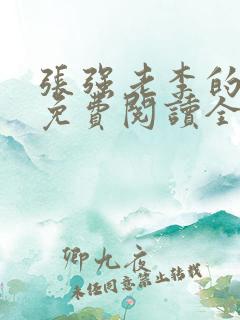 張強老李的
免費閱讀全
卿九夜
未經同意禁止轉載